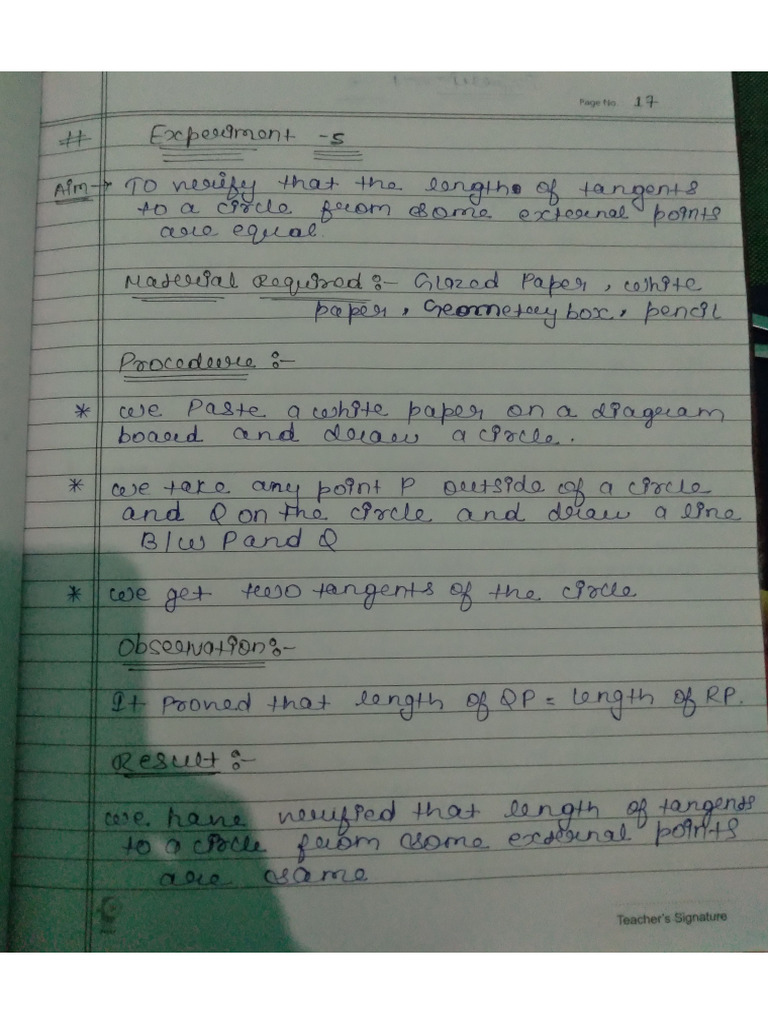 Page No. 17
# Experiment -5
Aim → To verify that the length of tangents
to a circle from some external points
are equal.
Material Required :- Glazed Paper, white
paper, Geometry box, pencil
Procedure :-
* we Paste a white paper on a diagram
board and draw a circle.
* we take any point P outside of a circle
and Q on the circle and draw a line
B/w P and Q
* we get two tangents of the circle
Observation :-
It Proved that length of QP = length of RP.
Result :-
we have verified that length of tangents
to a circle from some external points
are same
Teacher's Signature